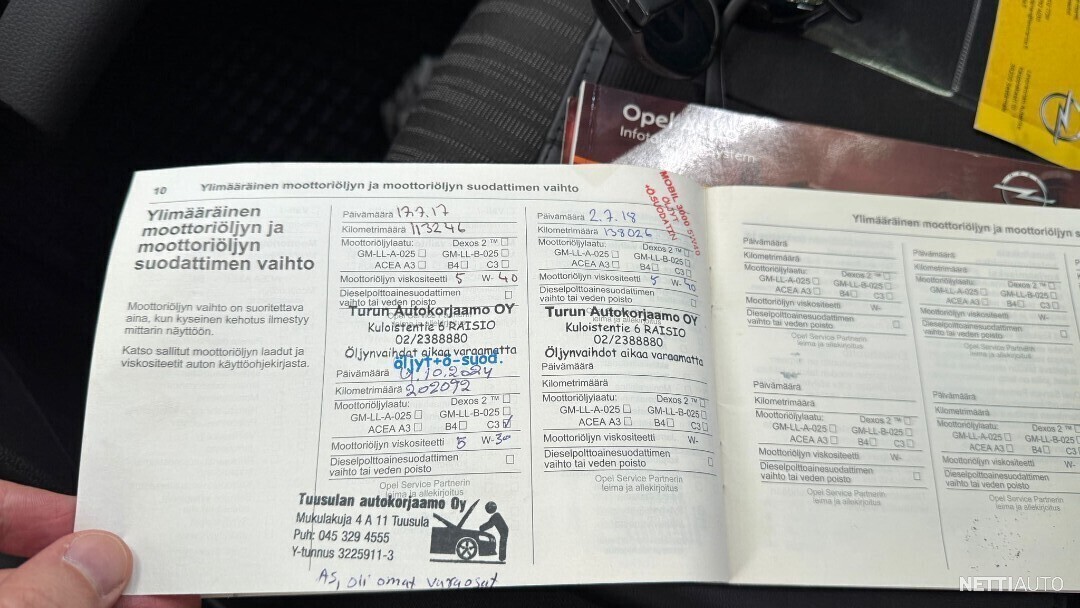 Opel
Infot
system
10 Ylimääräinen moottoriöljyn ja moottoriöljyn suodattimen vaihto
Ylimääräinen
moottoriöljyn ja
moottoriöljyn
suodattimen vaihto
Moottoriöljyn vaihto on suoritettava
aina, kun kyseinen kehotus ilmestyy
mittarin näyttöön.
Katso sallitut moottoriöljyn laadut ja
viskositeetit auton käyttöohjekirjasta.
Päivämäärä 17.7.17
Kilometrimäärä 113246
Moottoriöljylaatu: Dexos 2 ™
GM-LL-A-025 GM-LL-B-025
ACEA A3 B4 C3
Moottoriöljyn viskositeetti 5 W- 40
Dieselpolttoainesuodattimen
vaihto tai veden poisto
Turun Autokorjaamo OY
Kuloistentie 6 RAISIO
02/2388880
Öljynvaihdot aikaa varaamatta
öljyt+ö-suod.
Päivämäärä .10.2024
Kilometrimäärä 202092
Moottoriöljylaatu: Dexos 2 ™
GM-LL-A-025 GM-LL-B-025
ACEA A3 B4 C3
Moottoriöljyn viskositeetti 5 W-30
Dieselpolttoainesuodattimen
vaihto tai veden poisto
Opel Service Partnerin
leima ja allekirjoitus
Tuusulan autokorjaamo Oy
Mukulakuja 4 A 11 Tuusula
Puh: 045 329 4555
Y-tunnus 3225911-3
AS, oli omat varaosat
Päivämäärä 2.7.18
Kilometrimäärä 138026
MOBIL 3000
ÖLJYT
+ÖSUODATIN
Moottoriöljylaatu: Dexos 2 ™
GM-LL-A-025 GM-LL-B-025
ACEA A3 B4 C3
Moottoriöljyn viskositeetti 5 W-40
Dieselpolttoainesuodattimen
vaihto tai veden poisto
Turun Autokorjaamo OY
Kuloistentie 6 RAISIO
02/2388880
Öljynvaihdot aikaa varaamatta
Päivämäärä
Kilometrimäärä
Moottoriöljylaatu: Dexos 2 ™
GM-LL-A-025 GM-LL-B-025
ACEA A3 B4 C3
Moottoriöljyn viskositeetti W-
Dieselpolttoainesuodattimen
vaihto tai veden poisto
Opel Service Partnerin
leima ja allekirjoitus
Ylimääräinen moottoriöljyn ja moottoriöljyn s
Päivämäärä
Kilometrimäärä
Moottoriöljylaatu: Dexos 2 ™
GM-LL-A-025 GM-LL-B-025
ACEA A3 B4 C3
Moottoriöljyn viskositeetti W-
Dieselpolttoainesuodattimen
vaihto tai veden poisto
Opel Service Partnerin
leima ja allekirjoitus
Päivämäärä
Kilometrimäärä
Moottoriöljylaatu: Dexos 2 ™
GM-LL-A-025 GM-LL-B-025
ACEA A3 B4 C3
Moottoriöljyn viskositeetti W-
Dieselpolttoainesuodattimen
vaihto tai veden poisto
Opel Service Partnerin
leima ja allekirjoitus
Päivämäärä
Kilometrimäärä
Moottoriöljylaatu: Dexos 2
GM-LL-A-025 GM-LL-B-025
ACEA A3 B4
Moottoriöljyn viskositeetti W-
Dieselpolttoainesuodattimen
vaihto tai veden poisto
Opel Service Partnerin
leima ja allekirjoitus
Päivämäärä
Kilometrimäärä
Moottoriöljylaatu: Dexos 2
GM-LL-A-025 GM-LL-B-025
ACEA A3 B4
Moottoriöljyn viskositeetti W-
Dieselpolttoainesuodattimen
vaihto tai veden poisto
Opel Service Partnerin
leima ja allekirjoitus
NETTIAUTO